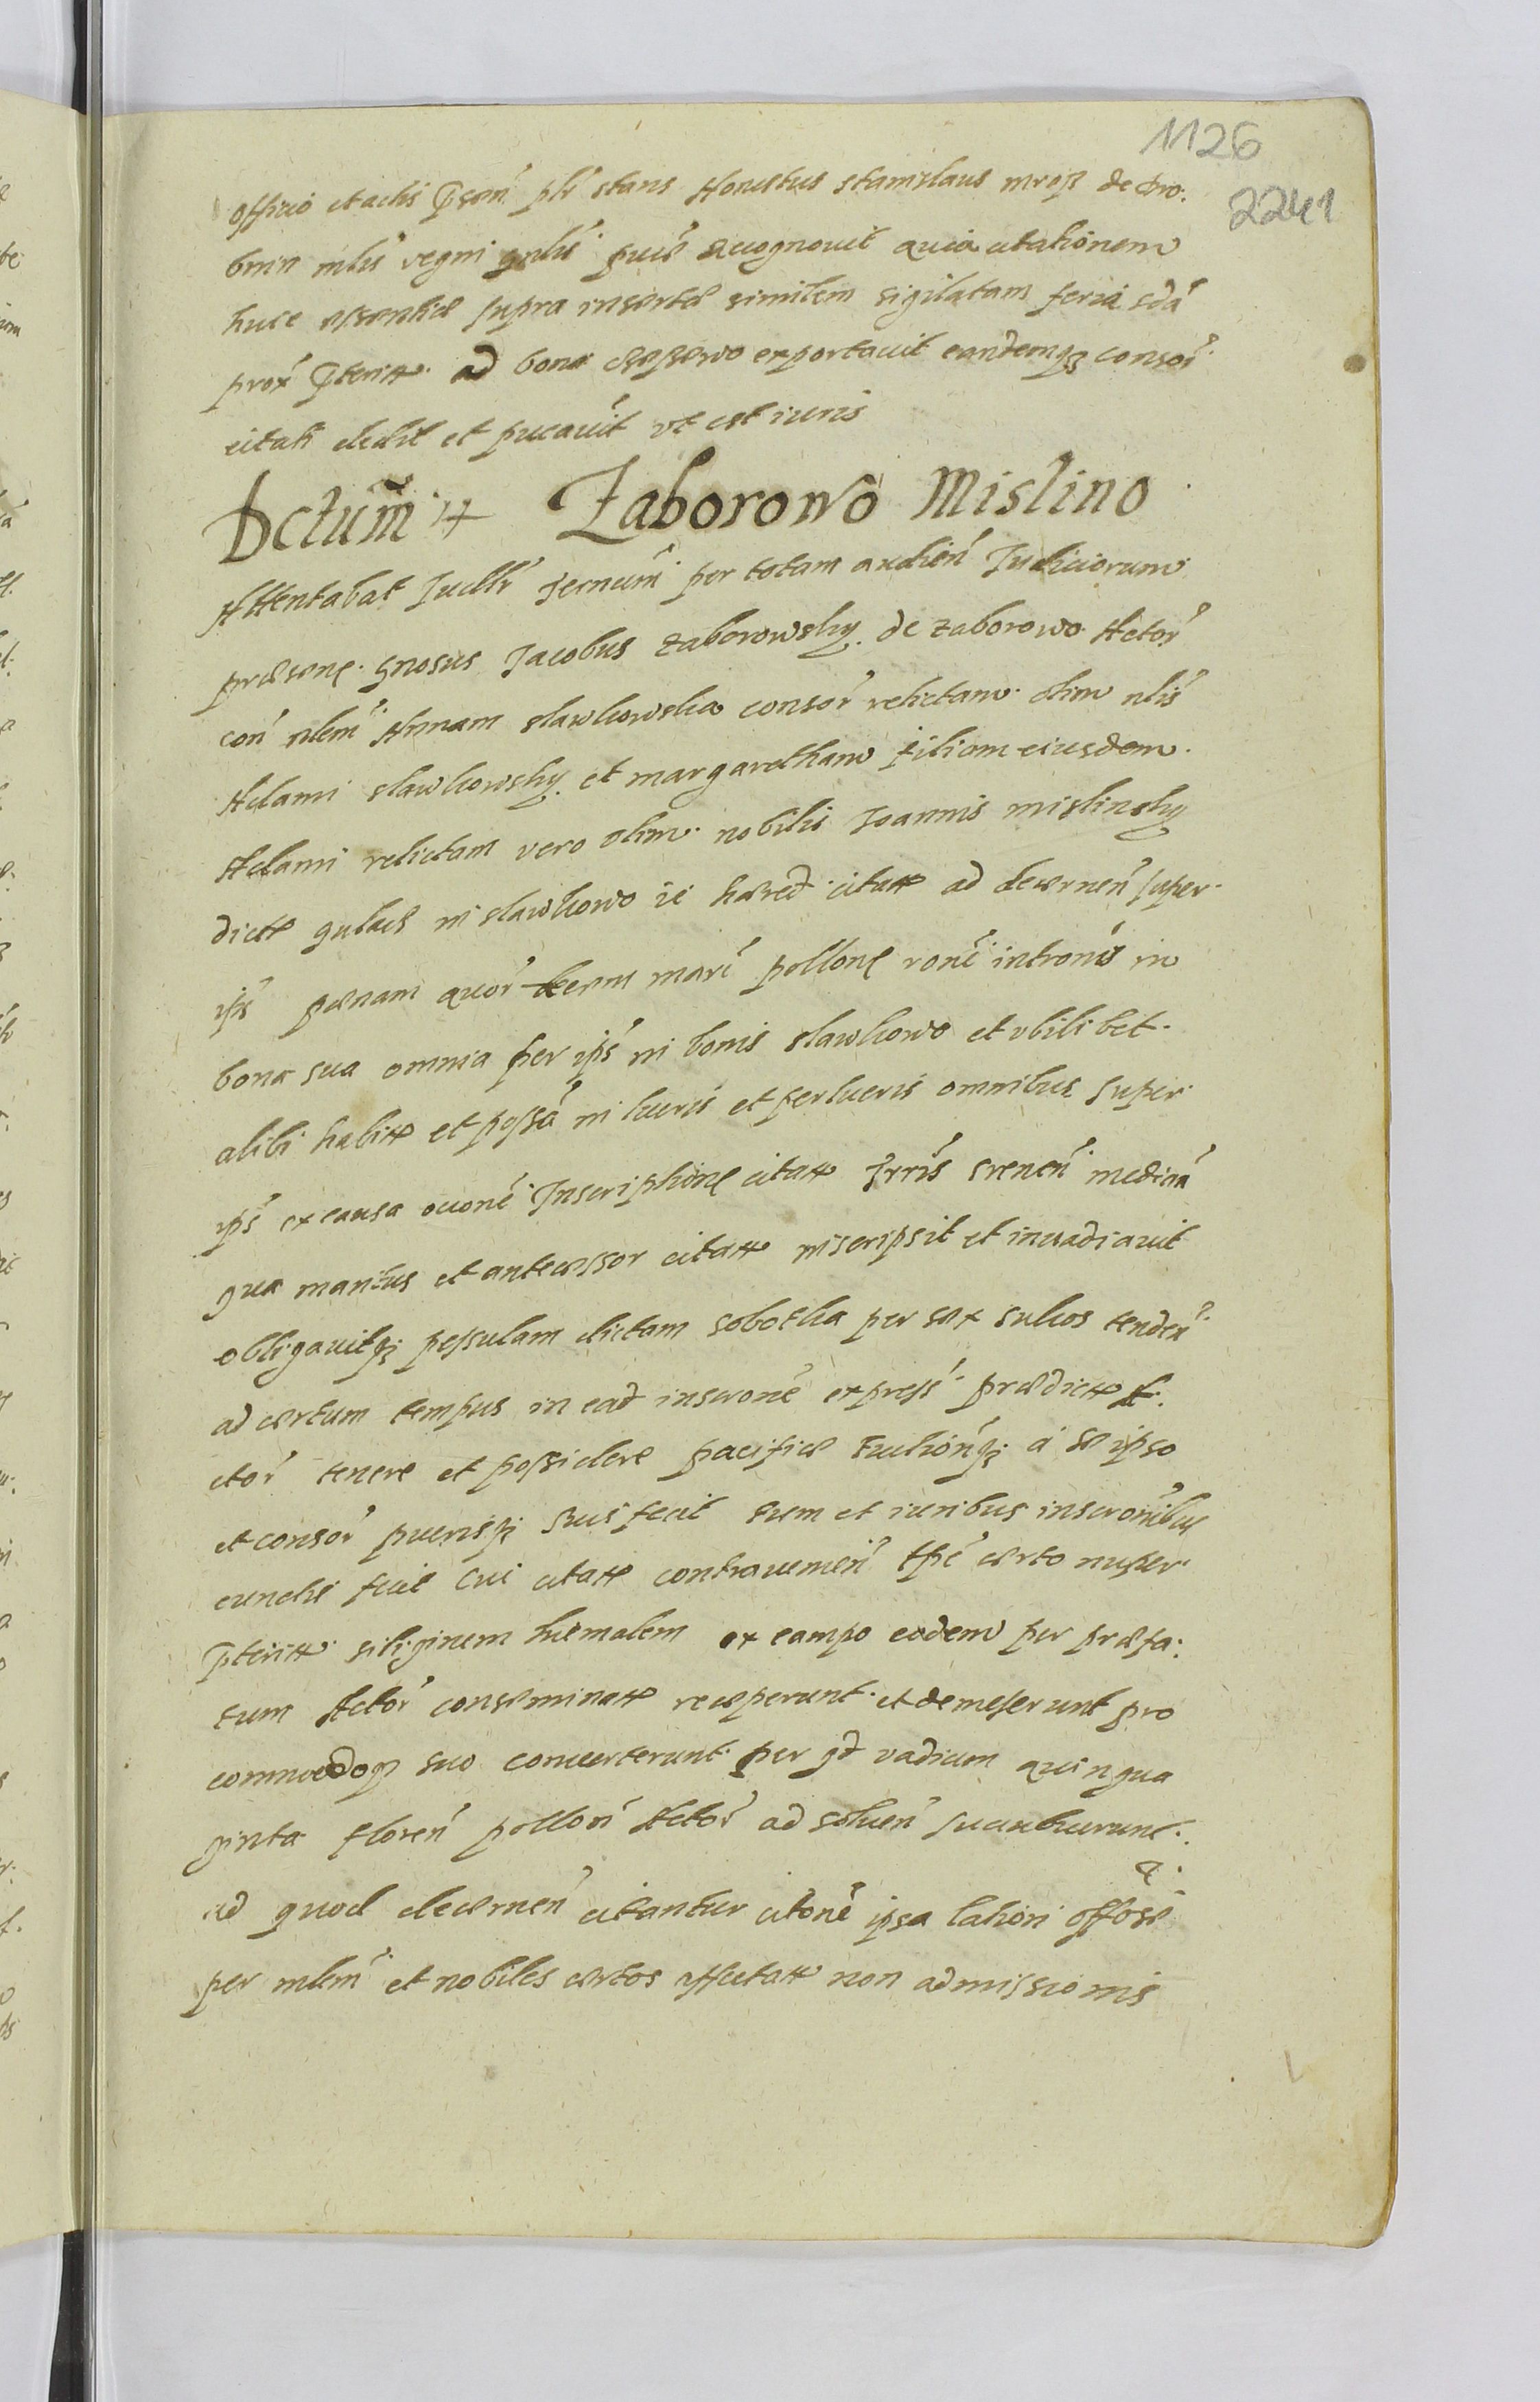 1126
2241
officio et actis psen plr stans Honestus Stanislaus mroß de dro:
bnin mlis regni gnlis pucs recognouit quia citationem
huic essentiæ supra insertæ similem sigilatam feria sda
prox pterit ad bona exportauit eandemq consor
citati dedit et pucauit vt est iuris
Actum Zaborowo Mislino
Attentabat Judlr Ternum per totam audien Judiciorum
præsens gnosus Jacobus Zaborowsky de Zaborowo Actor
con nlem Annam slawkowska consor relictam olim nlis
Adami slawkowsky et margaretham filiam eiusdem
Adami relictam vero olim nobilis Joannis mislinsky
dict gulacs in slawkowo ie hæred citatt ad decernen super
ips pænam quor decem marc pollone rone intromis in
bona sua omnia per ips in bonis slawkowo et vbilibet
alibi habitt et possa in lucris et perlucris omnibus super
ips ex causa ocone Inscriptione citatt Trris srenen medicin
qua maritus et antecessor citatt inscripsit et inuadiauit
obligauitq pessulam dictam sobotka per sex sulcos tenden
ad certum tempus in ead inscrone express prædictt A
ctor tenere et possidere pacifice Euctionq a se ipso
et consor puerisq suis fecit eum et iuribus inscronibus
cunctis fuit cui citatt contrauenien tpe certo nuper
pteritt siliginem hiemalem ex campo eodem per præfa:
tum Actor conseminatt receperunt et demeserunt pro
commodoq suo conuerterunt per qd vadium quinqua
ginta floren pollon Actor ad soluen succubuerunt
ad quod decernen citantur citone ipsa lation offose
per mlem et nobiles certos affectatt non admissionis